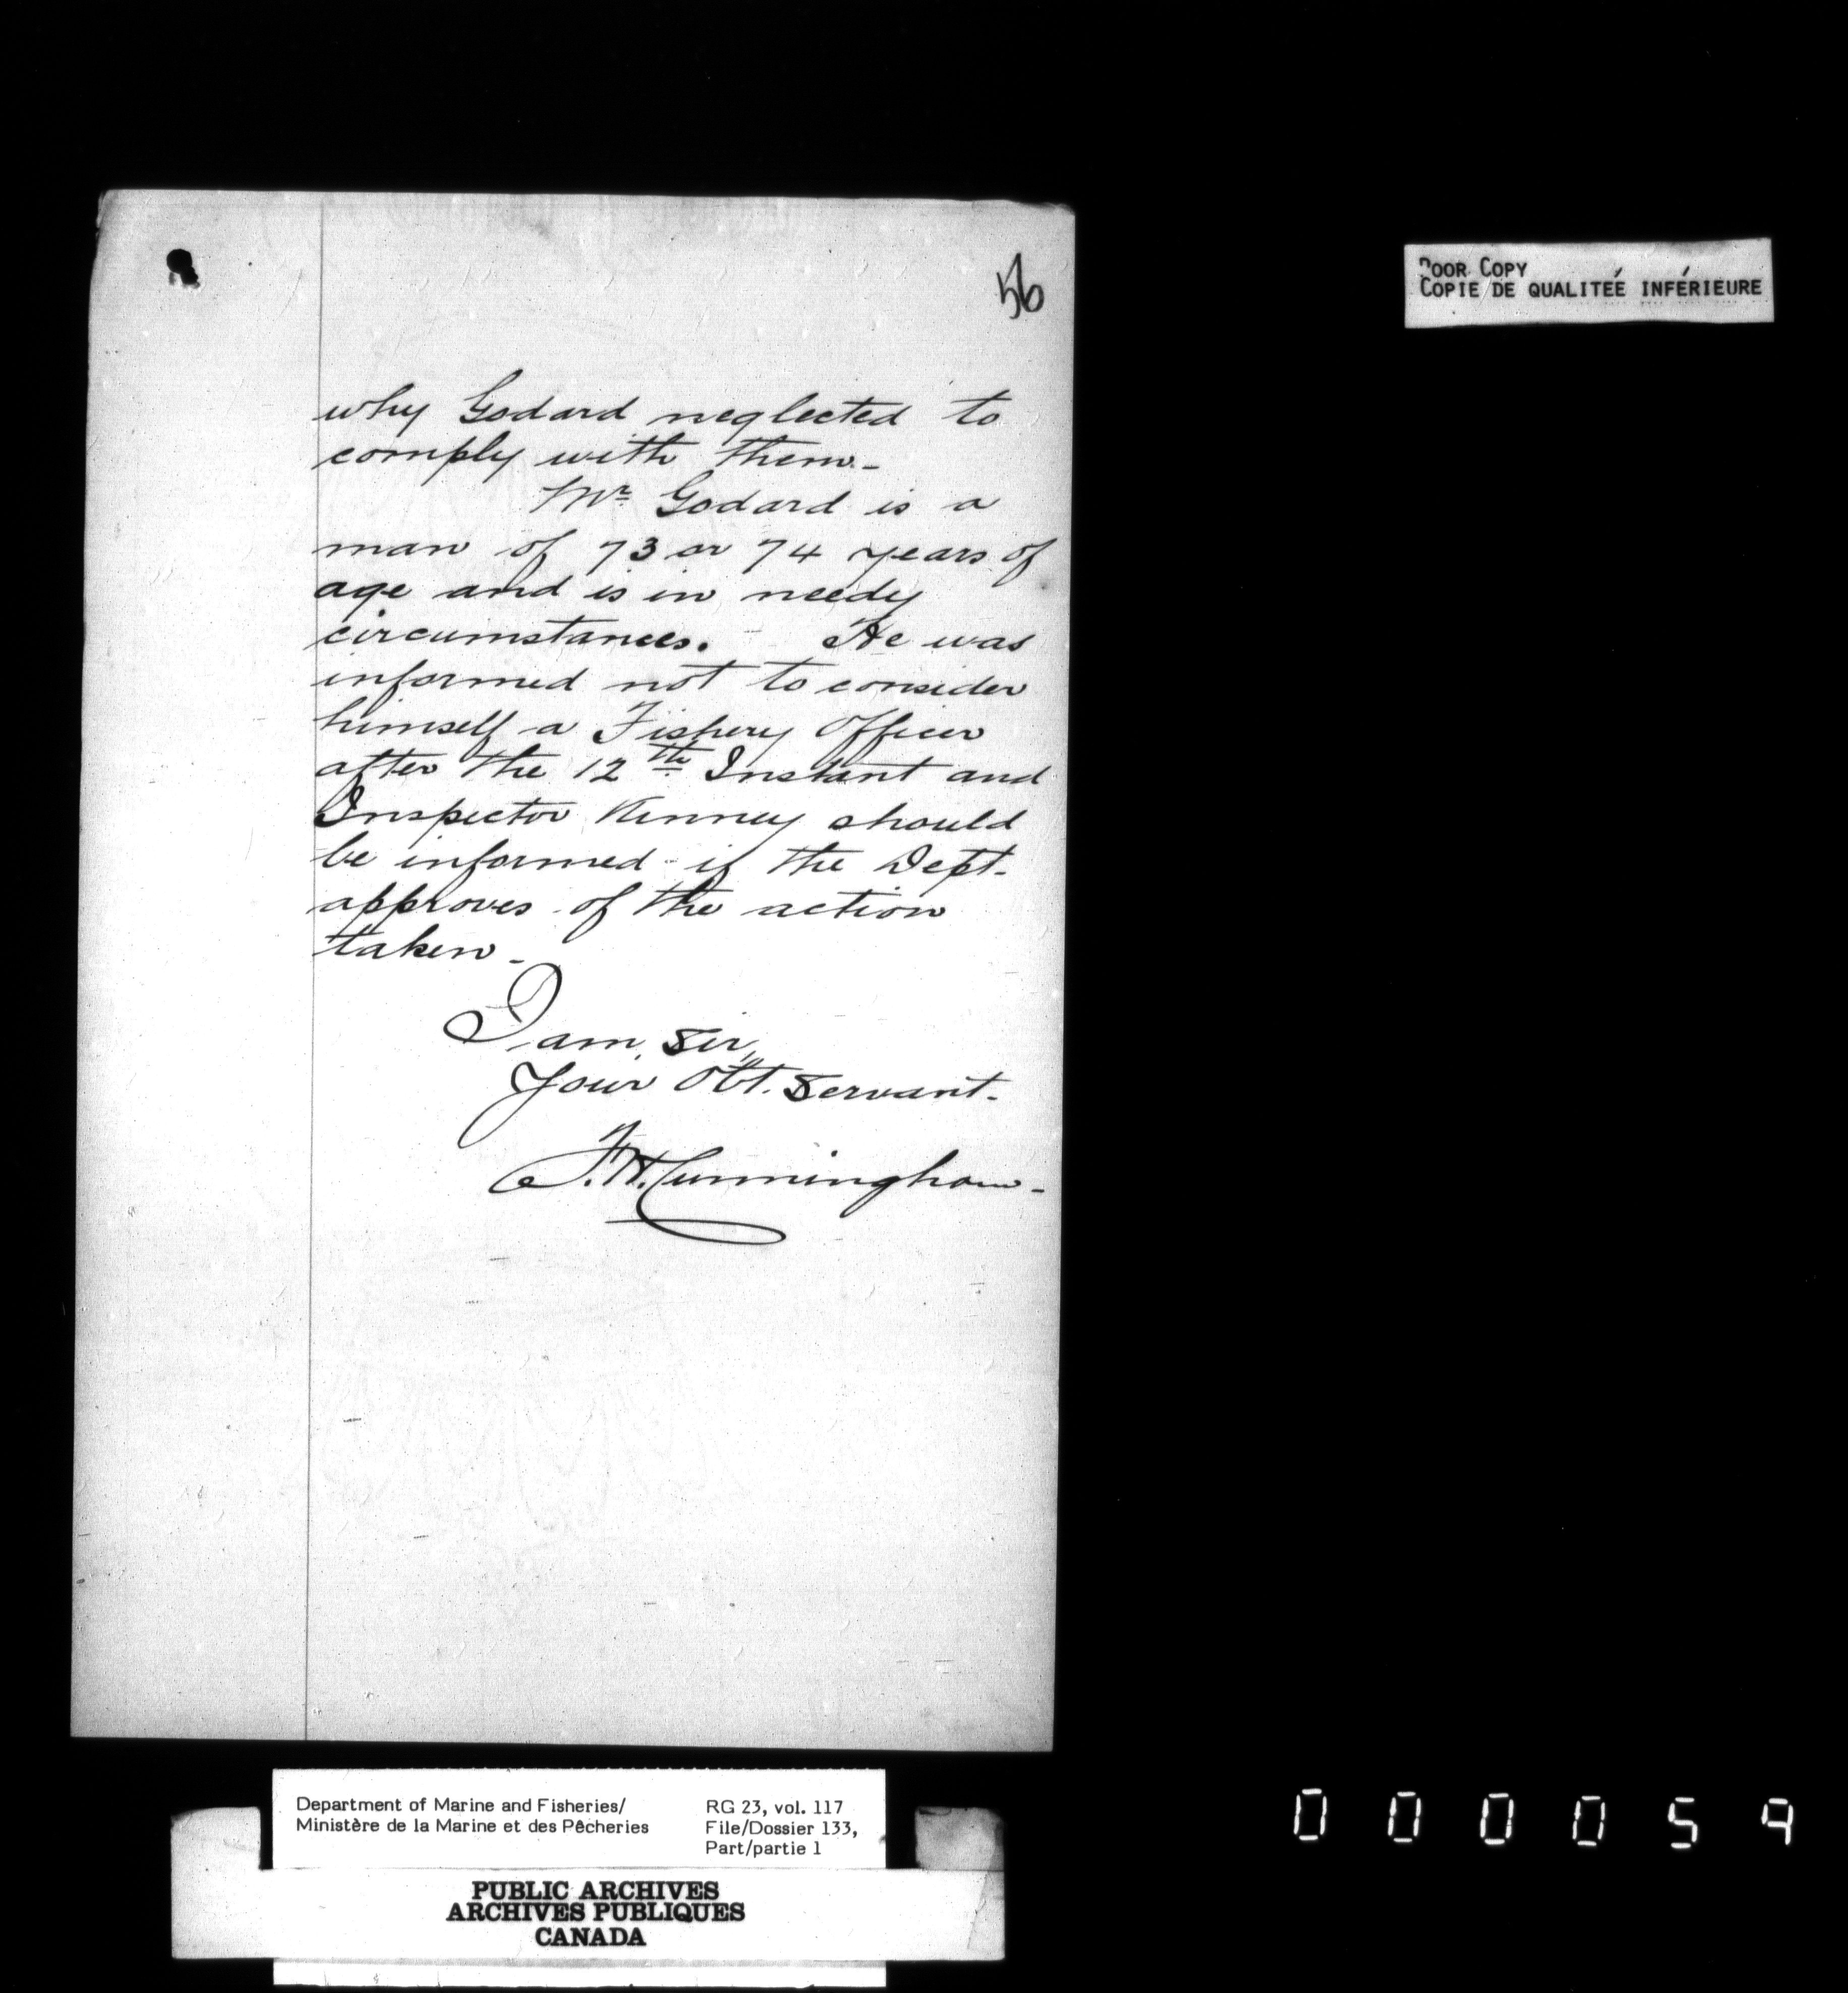 56
POOR COPY
COPIE DE QUALITÉE INFÉRIEURE
why Godard neglected to
comply with them.-
Mr. Godard is a
man of 73 or 74 years of
age and is in needy
circumstances. He was
informed not to consider
himself a Fishery Officer
after the 12th Instant and
Inspector Kinney should
be informed if the Dept.
approves of the action
taken.-
I am, Sir,
Your Obt. Servant.
F.H. Cunningham-
Department of Marine and Fisheries/
Ministère de la Marine et des Pêcheries
RG 23, vol. 117
File/Dossier 133,
Part/partie 1
PUBLIC ARCHIVES
ARCHIVES PUBLIQUES
CANADA
000059